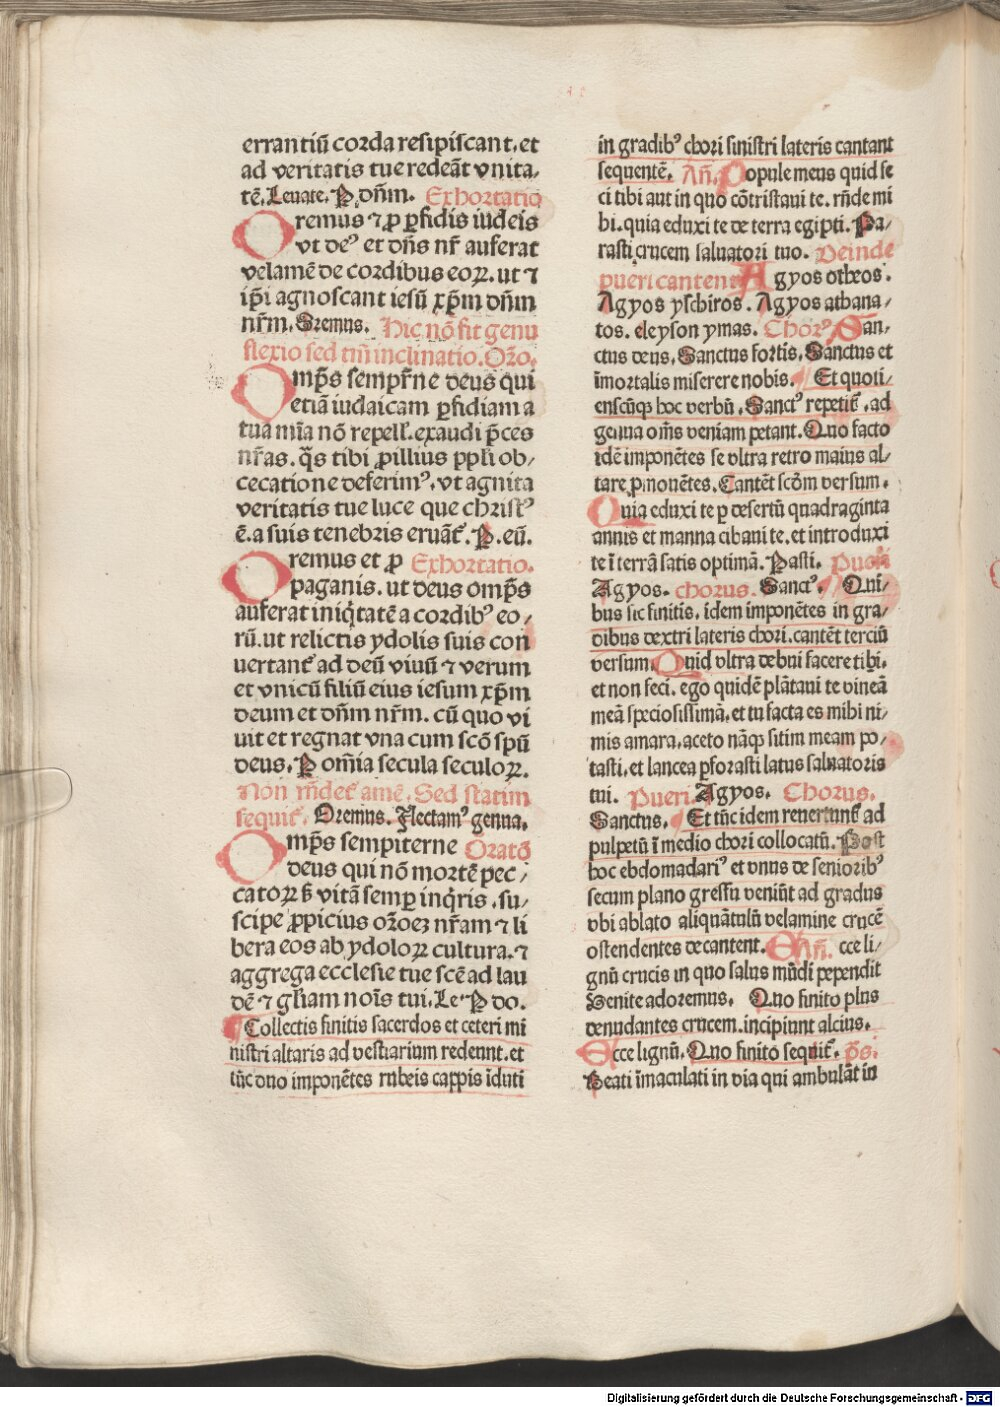 errantiū corda resipiscant. et
ad veritatis tue redeāt vnita/
tē. Leuate. P. dn̄m. Exhortatio
Oremus ⁊ ꝓ ꝑfidis iudeis
vt deꝰ et dn̄s nr̄ auferat
velamē de cordibus eoꝝ. ut ⁊
ip̄i agnoscant iesū xp̄m dn̄m
nr̄m. Oremus. Hic nō fit genu
flexio sed tm̄ inclinatio. Or̄o.
Omp̄s semp̄r̄ne deus qui
etiā iudaicam ꝑfidiam a
tua mīa nō repell̄. exaudi p̄ces
nr̄as. q̄s tibi ꝓ illius ppl̄i ob/
cecatione deferimꝰ. vt agnita
veritatis tue luce que christꝰ
ē. a suis tenebris eruāt̄. P. eū.
Oremus et ꝓ Exhortatio.
paganis. ut deus omp̄s
auferat iniq̄tatē a cordibꝰ eo/
rū. ut relictis ydolis suis con
uertant̄ ad deū viuū ⁊ verum
et vnicū filiū eius iesum xp̄m
deum et dn̄m nr̄m. cū quo vi
uit et regnat vna cum scō spū
deus. P om̄ia secula seculoꝝ.
Non rn̄det̄ amē. Sed statim
sequit̄. Oremus. Flectamꝰ genua.
Omp̄s sempiterne Oratō
deus qui nō mortē pec/
catoꝝ ß vitā semꝑ inq̄ris. su/
scipe ꝓpicius or̄oeꝫ nr̄am ⁊ li
bera eos ab ydoloꝝ cultura. ⁊
aggrega ecclesie tue scē ad lau
dē ⁊ gl̄iam noīs tui. Le. P do.
¶ Collectis finitis sacerdos et ceteri mi
nistri altaris ad vestiarium redeunt. et
tūc duo imponētes rubeis cappis īduti
in gradibꝰ chori sinistri lateris cantant
sequentē. An̄. Popule meus quid fe
ci tibi aut in quo cōtristaui te. rn̄de mi
hi. quia eduxi te de terra egipti. Pa/
rasti crucem saluatori tuo. Deinde
pueri cantent Agyos otheos.
Agyos yschiros. Agyos athana/
tos. eleyson ymas. Chorꝰ San/
ctus deus. Sanctus fortis. Sanctus et
īmortalis miserere nobis. ¶ Et quoti/
enscūqꝫ hoc verbū. Sanctꝰ repetit̄. ad
genua om̄s veniam petant. Quo facto
idē imponētes se vltra retro maius al/
tare ꝓmouētes. Cantēt scdm versum.
Quia eduxi te ꝑ desertū quadraginta
annis et manna cibaui te. et introduxi
te ī terrā satis optimā. Pasti. Pueri
Agyos. chorus. Sanctꝰ. ¶ Qui/
bus sic finitis. idem imponētes in gra/
dibus dextri lateris chori. cantēt terciū
versum. Quid vltra debui facere tibi.
et non feci. ego quidē plātaui te vineā
meā speciosissimā. et tu facta es mihi ni/
mis amara. aceto nāqꝫ sitim meam po/
tasti. et lancea ꝑforasti latus saluatoris
tui. Pueri Agyos. Chorus.
Sanctus. ¶ Et tūc idem reuertunt̄ ad
pulpetū ī medio chori collocatū. Post
hoc ebdomadariꝰ et vnus de senioribꝰ
secum plano gressu veniūt ad gradus
vbi ablato aliquātulū velamine crucē
ostendentes decantent. An̄. Ecce li/
gnū crucis in quo salus mūdi pependit
Venite adoremus. Quo finito plus
denudantes crucem. incipiunt alcius.
Ecce lignū. Quo finito sequit̄. p̄s.
Beati īmaculati in via qui ambulāt in
Digitalisierung gefördert durch die Deutsche Forschungsgemeinschaft - DFG